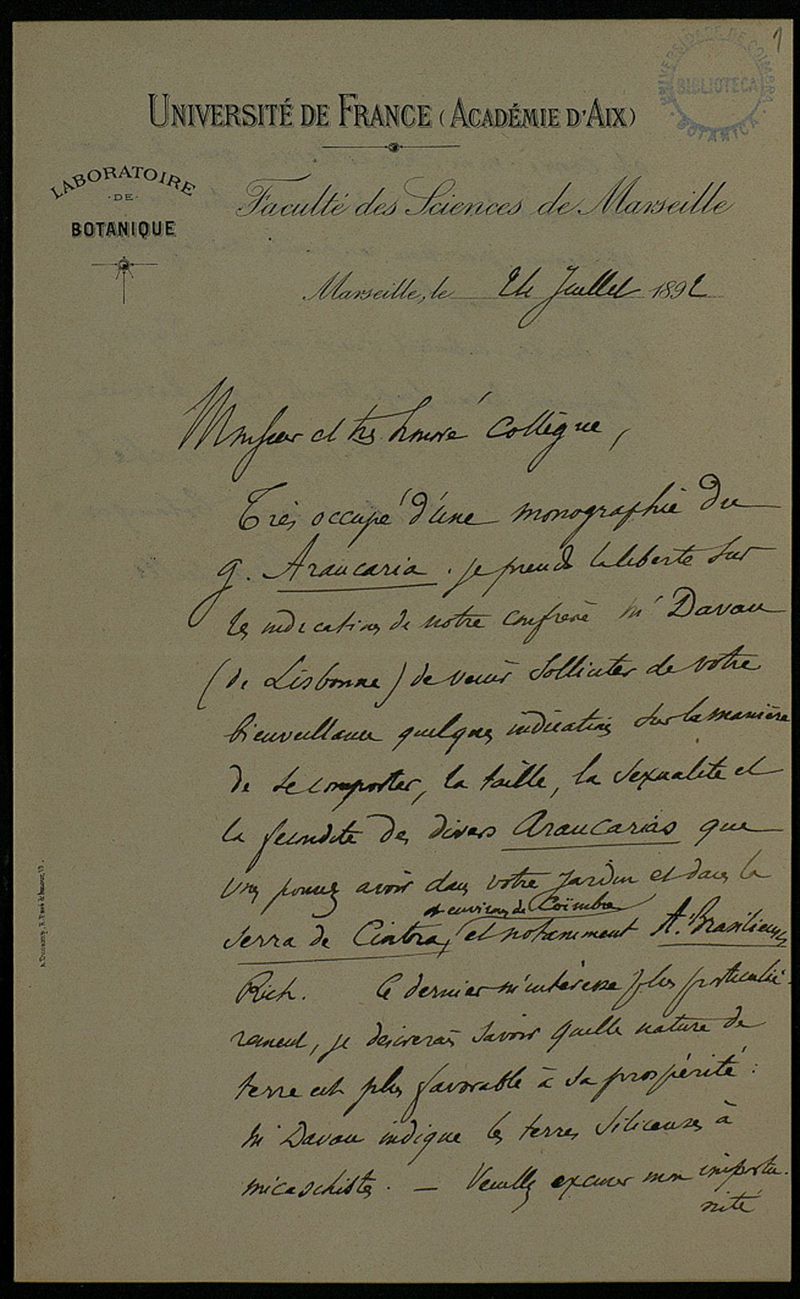 1
UNIVERSIDADE DE COIMBRA
BIBLIOTECA
BOTANICA
UNIVERSITÉ DE FRANCE (ACADÉMIE D'AIX)
LABORATOIRE
DE
BOTANIQUE
Faculté des Sciences de Marseille
Marseille, le 24 Juillet 1892
Monsieur et très honoré Collègue,
Très occupé d'une monographie du
g. Araucaria. je prends la liberté sur
les indications de notre confrère Mr Davau
(de Lisbonne) de venir solliciter de votre
bienveillance quelques indications sur la manière
de se comporter, la taille, la sexualité et
la fécondité des divers Araucarias que
vous pouvez avoir dans votre Jardin et dans la
et environs de Coïmbra
Serra de Cintra, et notamment A. Brasiliensis
Rich. Ce dernier m'intéresse plus particuliè-
rement, je desirerais savoir quelle nature de
terre est plus favorable à sa prospérité :
Mr Davau indique les terres siliceuses à
micaschistes. — Veuillez excuser mon importu-
nité